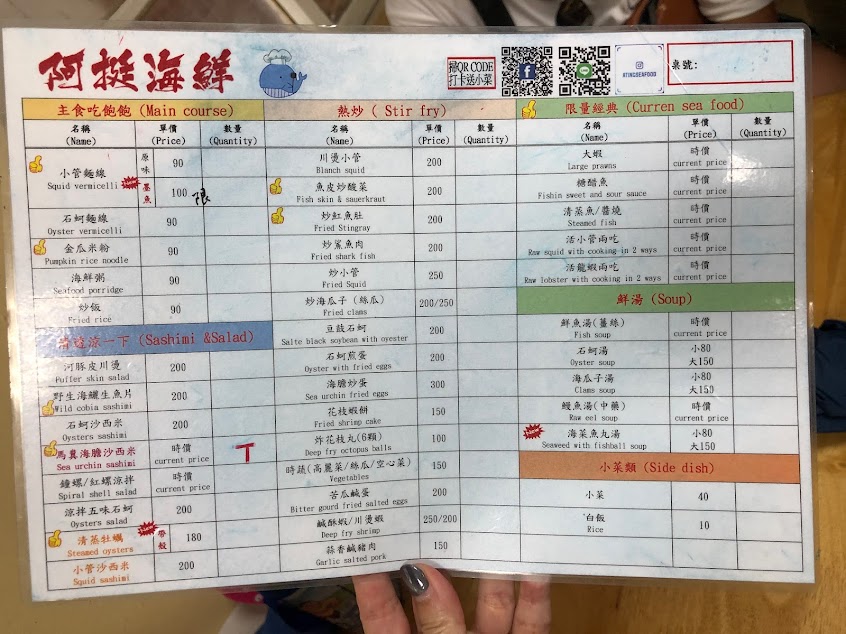 阿挺海鮮
掃QR CODE
打卡送小菜
ATINGSEAFOOD
桌號:
主食吃飽飽 (Main course)
名稱 (Name) 單價 (Price) 數量 (Quantity)
小管麵線 原味 90
Squid vermicelli 墨魚 100 限
石蚵麵線 90
Oyster vermicelli
金瓜米粉 90
Pumpkin rice noodle
海鮮粥 90
Seafood porridge
炒飯 90
Fried rice
涼一下 (Sashimi &Salad)
河豚皮川燙 200
Puffer skin salad
野生海鱺生魚片 200
Wild cobia sashimi
石蚵沙西米 200
Oysters sashimi
馬糞海膽沙西米 時價
Sea urchin sashimi current price
鐘螺/紅螺涼拌 時價
Spiral shell salad current price
涼拌五味石蚵 200
Oysters salad
清蒸牡蠣 帶殼 180
Steamed oysters
小管沙西米 200
Squid sashimi
熱炒 ( Stir fry)
名稱 (Name) 單價 (Price) 數量 (Quantity)
川燙小管 200
Blanch squid
魚皮炒酸菜 200
Fish skin & sauerkraut
炒魟魚肚 200
Fried Stingray
炒鯊魚肉 200
Fried shark fish
炒小管 250
Fried Squid
炒海瓜子 (絲瓜) 200/250
Fried clams
豆鼓石蚵 200
Salte black soybean with oyester
石蚵煎蛋 200
Oyster with fried eggs
海膽炒蛋 300
Sea urchin fried eggs
花枝蝦餅 150
Fried shrimp cake
炸花枝丸(6顆) 100
Deep fry octopus balls
時蔬(高麗菜/絲瓜/空心菜) 150
Vegetables
苦瓜鹹蛋 200
Bitter gourd fried salted eggs
鹹酥蝦/川燙蝦 250/200
Deep fry shrimp
蒜香鹹豬肉 150
Garlic salted pork
限量經典 (Curren sea food)
名稱 (Name) 單價 (Price) 數量 (Quantity)
大蝦 時價
Large prawns current price
糖醋魚 時價
Fishin sweet and sour sauce current price
清蒸魚/醬燒 時價
Steamed fish current price
活小管兩吃 時價
Raw squid with cooking in 2 ways current price
活龍蝦兩吃 時價
Raw lobster with cooking in 2 ways current price
鮮湯 (Soup)
鮮魚湯(薑絲) 時價
Fish soup current price
石蚵湯 小80
Oyster soup 大150
海瓜子湯 小80
Clams soup 大150
鰻魚湯(中藥) 時價
Raw eel soup current price
海菜魚丸湯 小80
Seaweed with fishball soup 大150
小菜類 (Side dish)
小菜 40
白飯 10
Rice